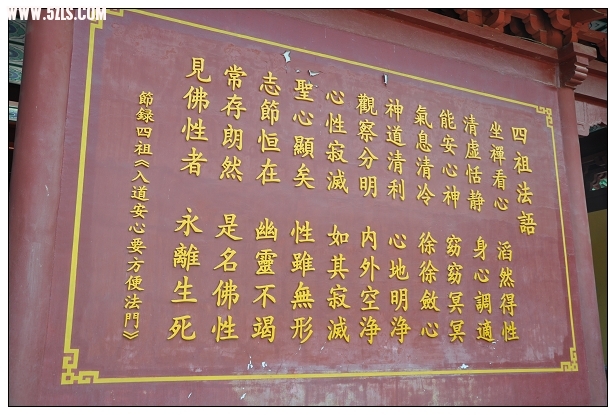 WWW.52LS.COM
四祖法語
坐禪看心 滔然得性
清虛恬静 身心調適
能安心神 窈窈冥冥
氣息清冷 徐徐斂心
神道清利 心地明浄
觀察分明 内外空浄
心性寂滅 如其寂滅
聖心顯矣 性雖無形
志節恒在 幽靈不竭
常存朗然 是名佛性
見佛性者 永離生死
節録四祖《入道安心要方便法門》